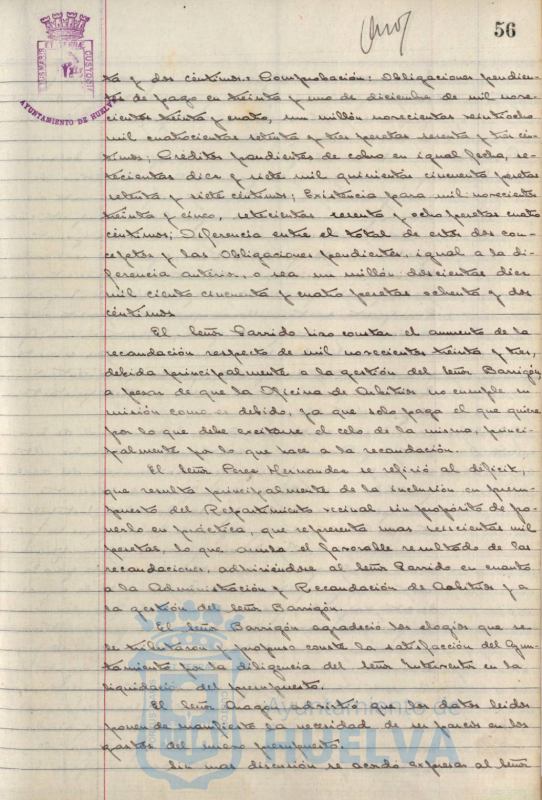 56
AYUNTAMIENTO DE HUELVA
ta y dos céntimos. Comprobación: Obligaciones pendien-
tes de pago en treinta y uno de diciembre de mil nove-
cientos treinta y cuatro, un millón novecientas veintiocho
mil cuatrocientas setenta y tres pesetas sesenta y tres cén-
timos; Créditos pendientes de cobro en igual fecha, se-
tecientas diez y siete mil quinientas cincuenta pesetas
setenta y siete céntimos; Existencia para mil novecientos
treinta y cinco, setecientas sesenta y ocho pesetas cuatro
céntimos; Diferencia entre el total de estos dos con-
ceptos y las Obligaciones pendientes, igual a la di-
ferencia anterior, o sea un millón doscientas diez
mil ciento cincuenta y cuatro pesetas ochenta y dos
céntimos
El Señor Garrido hizo constar el aumento de la
recaudación respecto de mil novecientos treinta y tres,
debida principalmente a la gestión del Señor Barrigón,
a pesar de que la Oficina de Arbitrios no cumple su
misión como es debido, ya que solo paga el que quiere
por lo que debe excitarse el celo de la misma, princi-
palmente por lo que hace a la recaudación.
El Señor Perez Hernandez se refirió al déficit,
que resulta principalmente de la inclusión en presu-
puesto del Repartimiento vecinal sin propósito de po-
nerlo en práctica, que representa unas seiscientas mil
pesetas, lo que anula el favorable resultado de las
recaudaciones, adhiriéndose al Señor Garrido en cuanto
a la Administración y Recaudación de Arbitrios y a
la gestión del Señor Barrigón.
El Señor Barrigón agradeció los elogios que se
le tributaron y propuso conste la satisfacción del Ayun-
tamiento por la diligencia del Señor Interventor en la
liquidación del presupuesto.
El Señor advirtió que los datos leidos
ponen de manifiesto la necesidad de ser parcos en los
gastos del nuevo presupuesto.
Sin mas discusión se acordó expresar al Señor
Ayuntamiento de
HUELVA